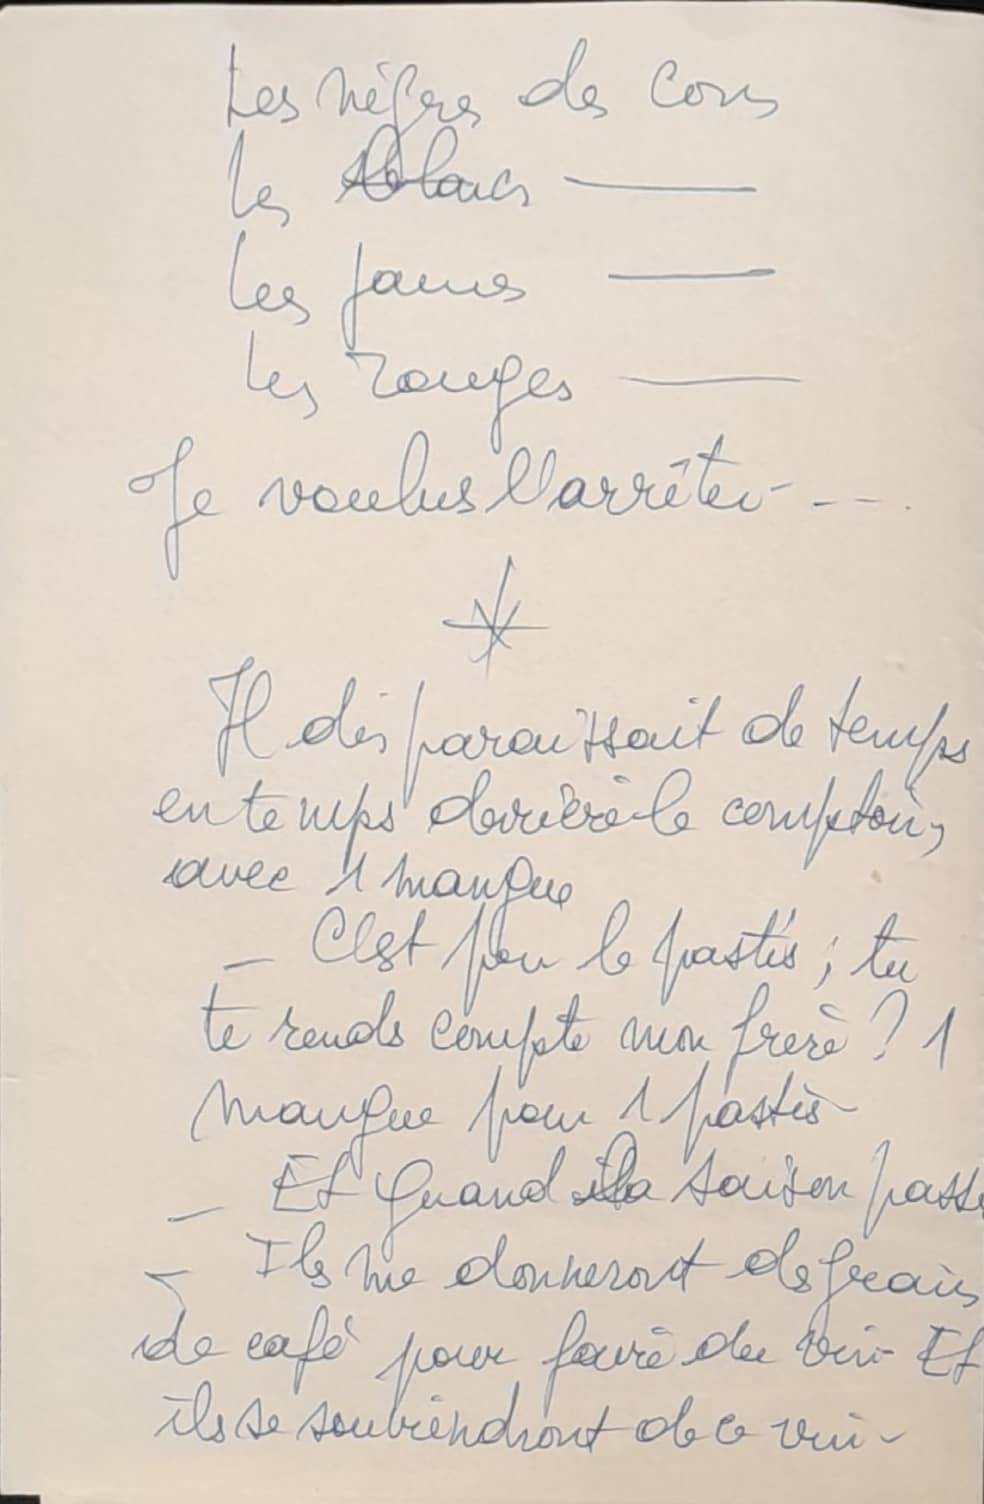 Les nègres des cons
Les blancs ——
Les jaunes ——
Les rouges ——
Je voulus l'arrêter - - - .
*
Il disparaissait de temps
en temps derrière le comptoir,
avec 1 mangue
— C'est pour le pastis ; tu
te rends compte mon frère ? 1
mangue pour 1 pastis -
— Et quand la saison passe
— Ils me donneront des grains
de café pour faire du vin - Et
ils se souviendront de ce vin -